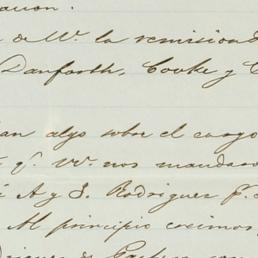 de Vv. la remision d
Danforth, Cooke y C
an algo sobre el cargo
qe Vv. nos mandaro
A y S. Rodriguez pr.
Al principio creimos